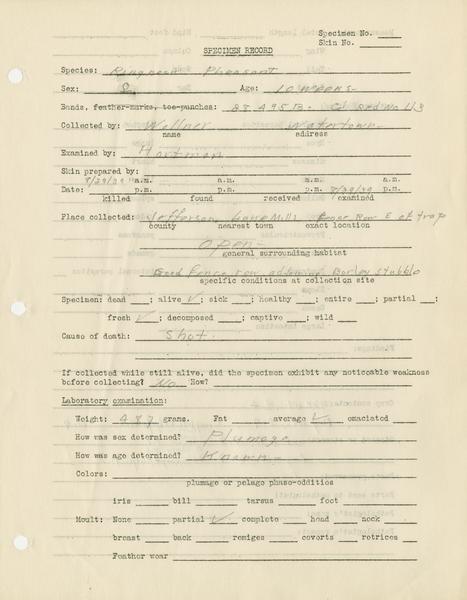 Specimen No.
Skin No.
SPECIMEN RECORD
Species: Ringneck Pheasant
Sex: ♀ Age: 10 weeks-
Bands, feather-marks, toe-punches: No 118
Collected by: Wellner Watertown
name address
Examined by: Hartman
Skin prepared by:
8/29/39 a.m. a.m. a.m. a.m.
Date: p.m. p.m. p.m. 8/29/39 p.m.
killed found received examined
Place collected: Jefferson Lake Mills Fence Row E of trap
county nearest town exact location
Open-
general surrounding habitat
Good Fence row adjoining Barley stubble
specific conditions at collection site
Specimen: dead ; alive ✓; sick ; healthy ; entire ; partial ;
fresh ✓; decomposed ; captive ; wild
Cause of death: Shot.
If collected while still alive, did the specimen exhibit any noticable weakness
before collecting? No How?
Laboratory examination:
Weight: 487 grams. Fat average ✓ emaciated
How was sex determined? Plumage
How was age determined? Known-
Colors:
plumage or pelage phase-oddities
iris bill tarsus foot
Moult: None partial ✓ complete head neck
breast back remiges coverts retrices
Feather wear